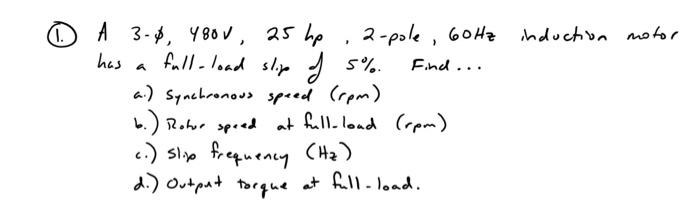 1. A 3-ϕ, 480V, 25 hp, 2-pole, 60Hz induction motor
has a full-load slip of 5%. Find...
a.) Synchronous speed (rpm)
b.) Rotor speed at full-load (rpm)
c.) Slip frequency (Hz)
d.) Output torque at full-load.